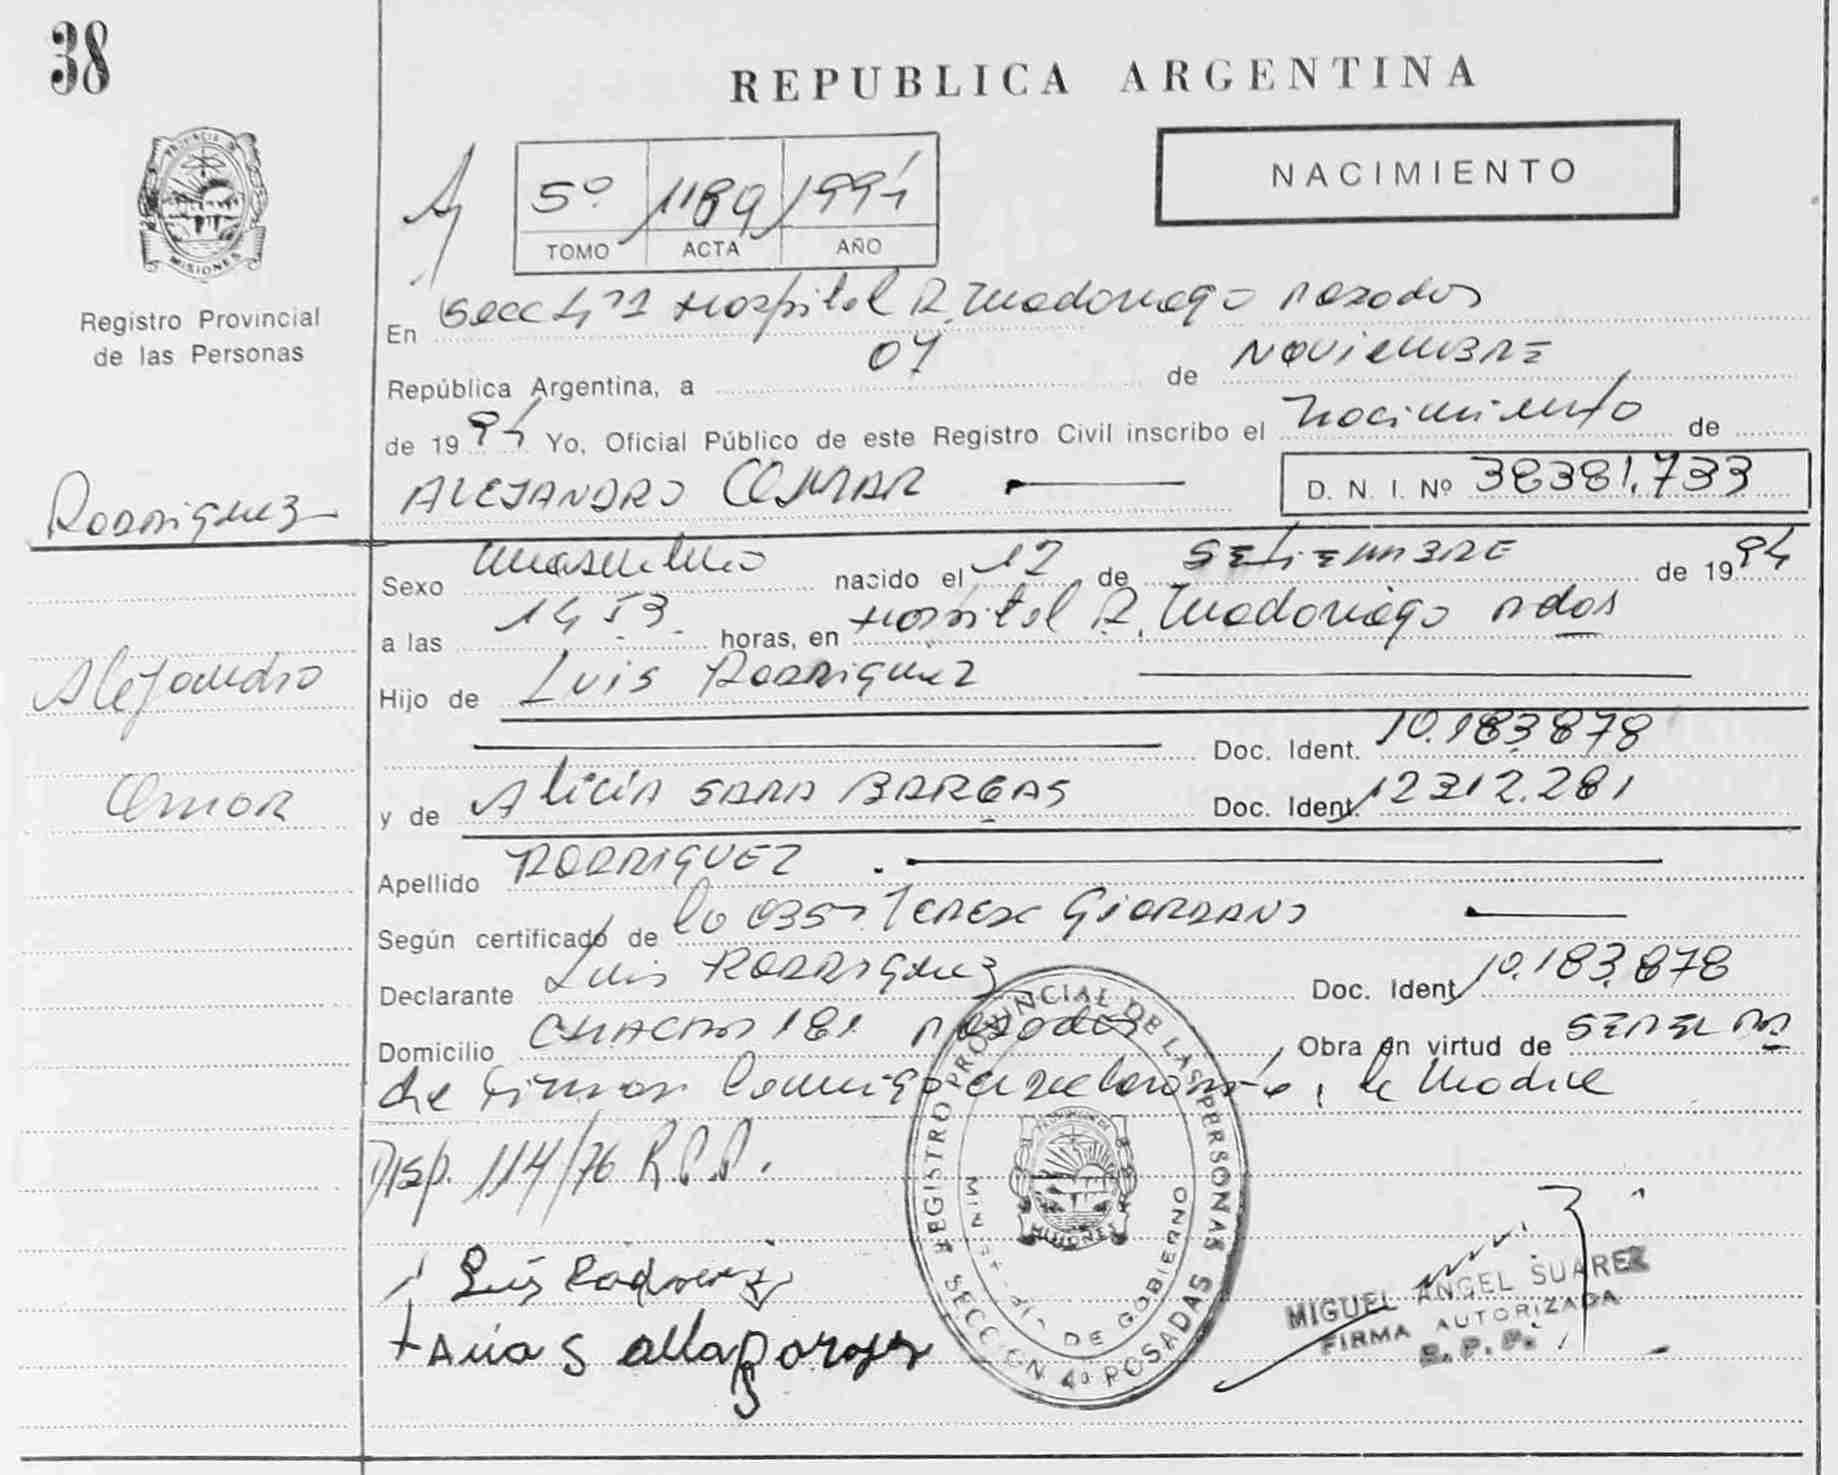 38
REPUBLICA ARGENTINA
PROVINCIA D
MISIONES
Registro Provincial
de las Personas
NACIMIENTO
5º 1189 1994
TOMO ACTA AÑO
En Secc 4ta Hospital R. Madariaga Posadas
República Argentina, a 04 de NOVIEMBRE
de 1994 Yo, Oficial Público de este Registro Civil inscribo el Nacimiento de
Rodriguez
ALEJANDRO OMAR D. N. I. Nº 38381.733
Sexo masculino nacido el 12 de SETIEMBRE de 1994
a las 14 53 horas, en Hospital R. Madariaga Pdas
Alejandro
Hijo de Luis Rodriguez
Doc. Ident. 10.183.878
Omar
y de Alicia SARA BARGAS Doc. Ident. 12312.281
Apellido RODRIGUEZ
Según certificado de la Teresa GIORDANO
Declarante Luis Rodriguez Doc. Ident. 10.183.878
Domicilio CHACAS 181 Posadas Obra en virtud de SER EL PP
de firman conmigo el declarante, la Madre
Disp. 114/76 R.P.P.
Luis Rodriguez
REGISTRO PROVINCIAL DE LAS PERSONAS
SECCION 4ª POSADAS
DE GOBIERNO
MISIONES
MIGUEL ANGEL SUAREZ
FIRMA AUTORIZADA
R. P. P.